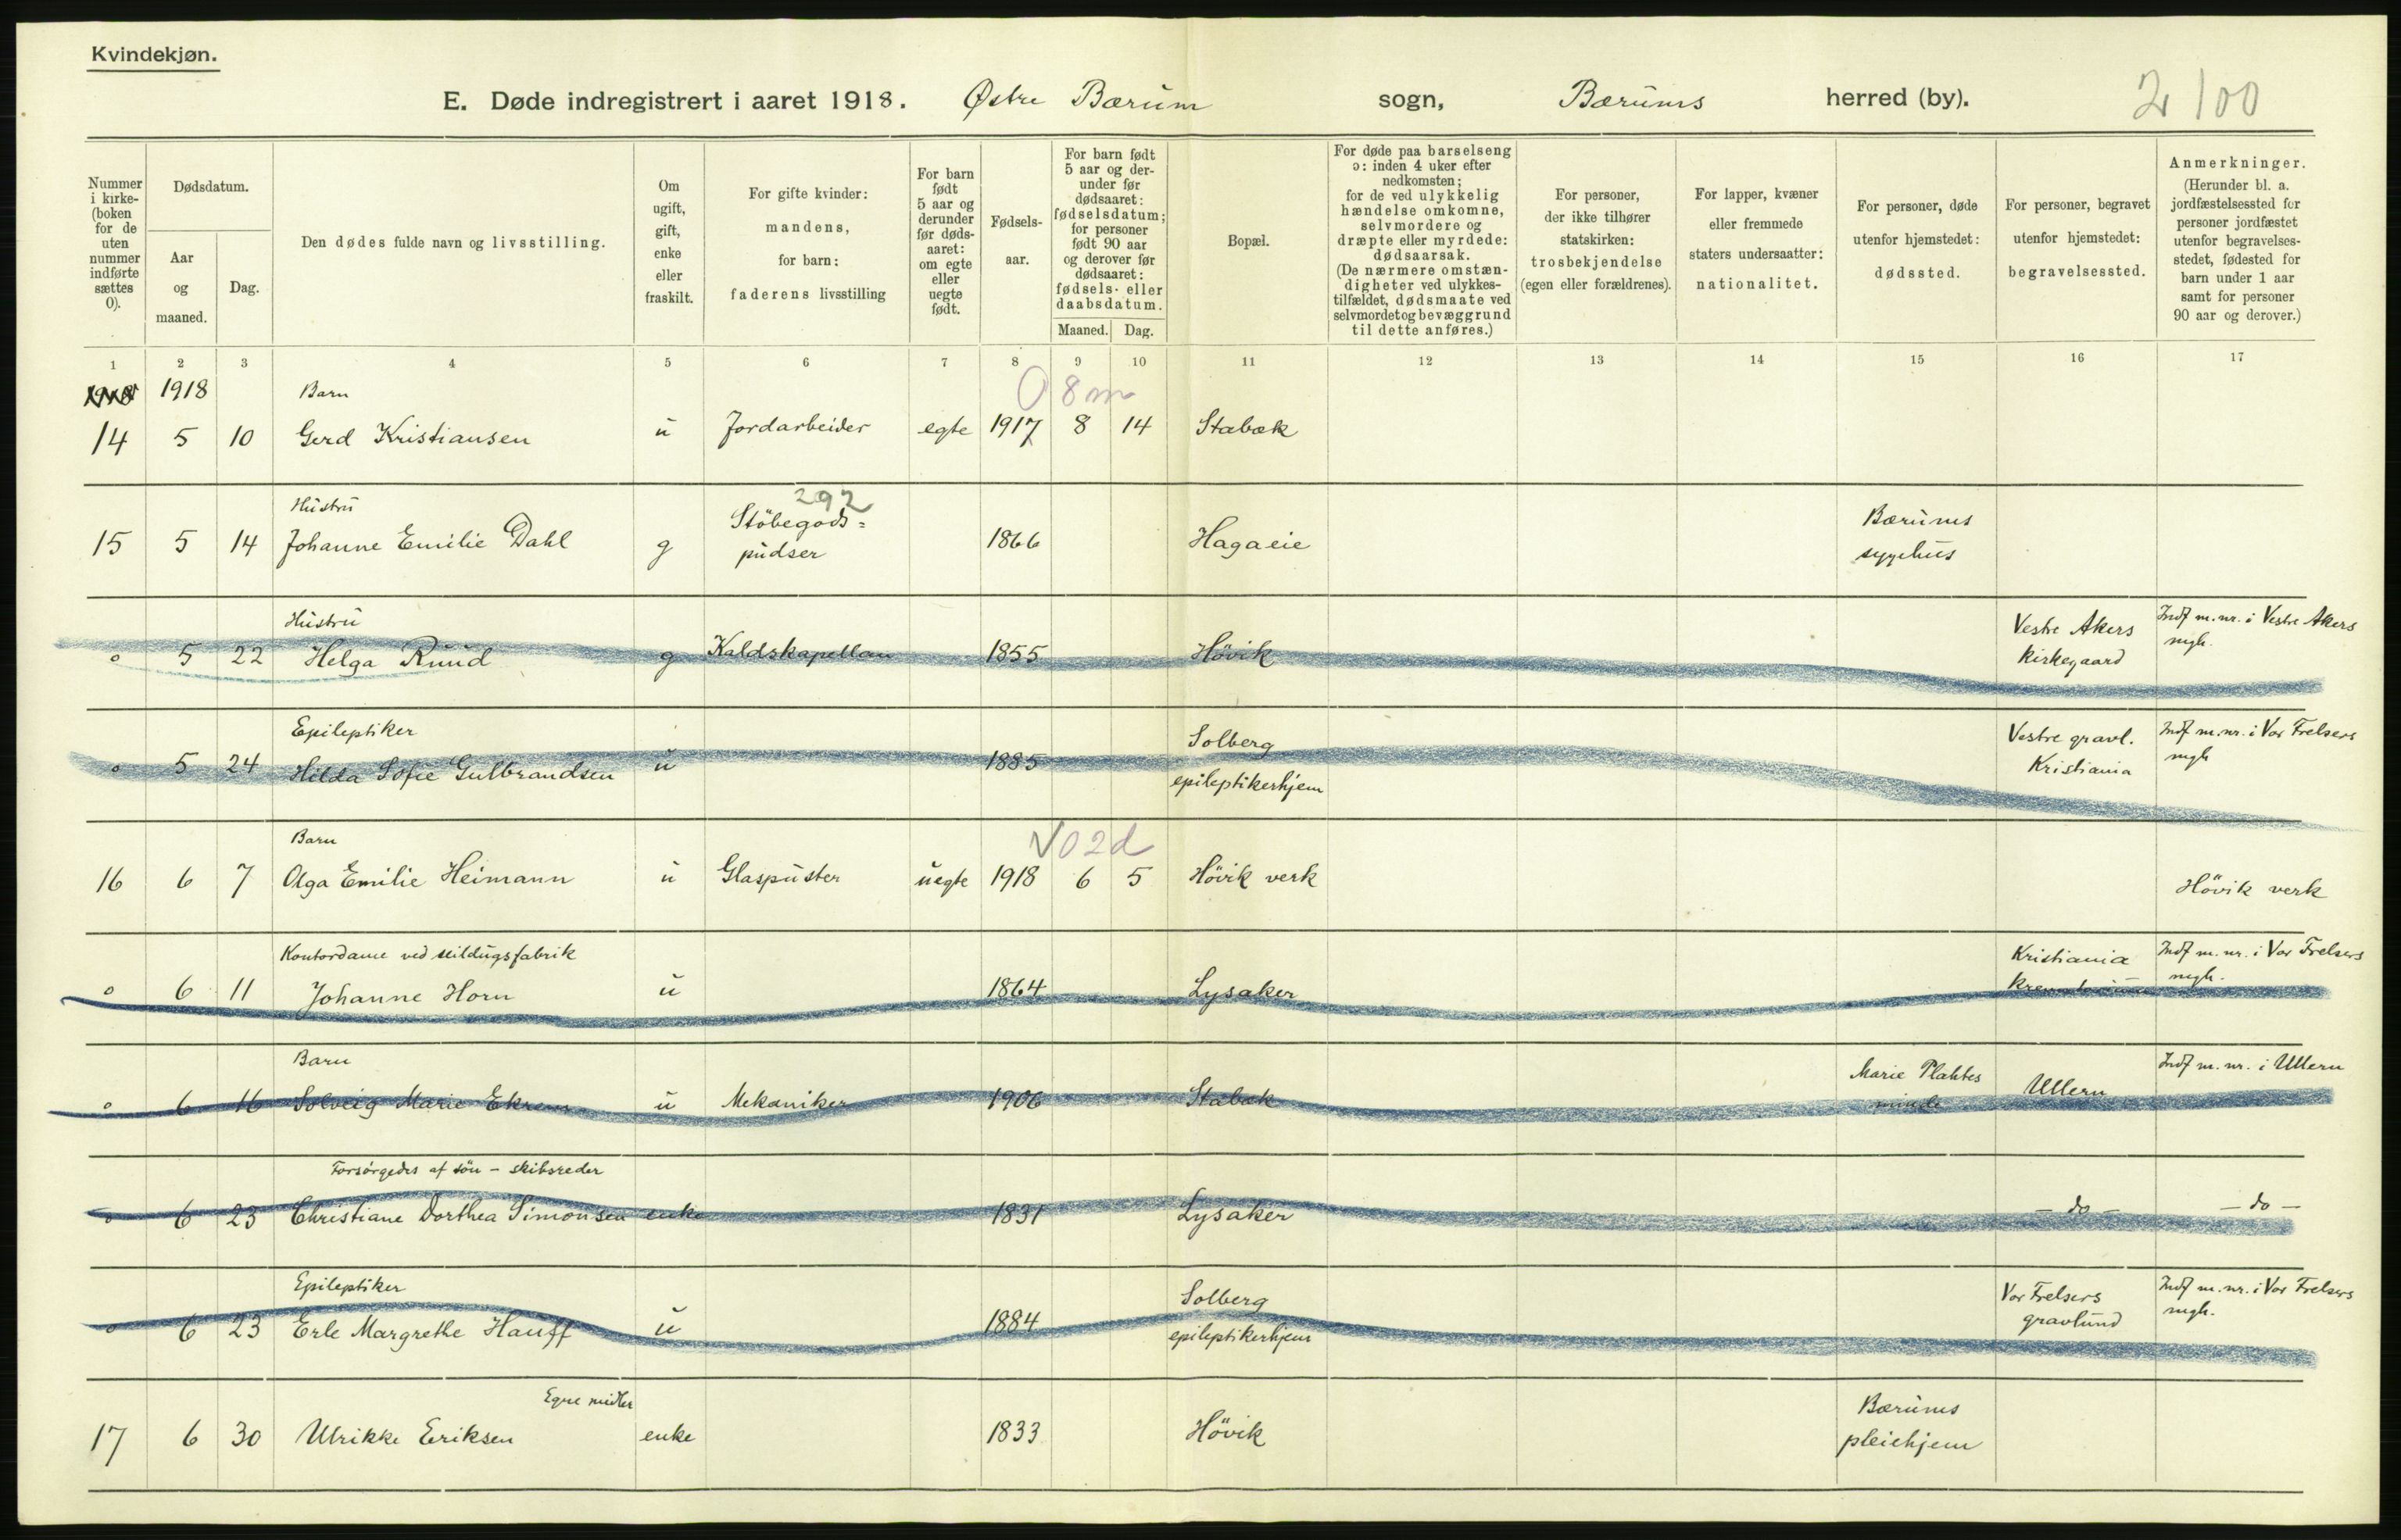 Kvindekjøn.
E. Døde indregistrert i aaret 1918. Østre Bærum sogn, Bærums herred (by). 2 100
Nummer i kirke- (boken for de uten nummer indførte sættes 0).
Dødsdatum.
Aar og maaned.
Dag.
Den dødes fulde navn og livsstilling.
Om ugift, gift, enke eller fraskilt.
For gifte kvinder: mandens, for barn: faderens livsstilling
For barn født 5 aar og derunder før døds- aaret: om egte eller uegte født.
Fødsels- aar.
For barn født 5 aar og der- under før dødsaaret: fødselsdatum; for personer født 90 aar og derover før dødsaaret: fødsels- eller daabsdatum.
Maaned. Dag.
Bopæl.
For døde paa barselseng ɔ: inden 4 uker efter nedkomsten; for de ved ulykkelig hændelse omkomne, selvmordere og dræpte eller myrdede: dødsaarsak. (De nærmere omstæn- digheter ved ulykkes- tilfældet, dødsmaate ved selvmordet og bevæggrund til dette anføres.)
For personer, der ikke tilhører statskirken: trosbekjendelse (egen eller forældrenes).
For lapper, kvæner eller fremmede staters undersaatter: nationalitet.
For personer, døde utenfor hjemstedet: dødssted.
For personer, begravet utenfor hjemstedet: begravelsessted.
Anmerkninger. (Herunder bl. a. jordfæstelsessted for personer jordfæstet utenfor begravelses- stedet, fødested for barn under 1 aar samt for personer 90 aar og derover.)
1 2 3 4 5 6 7 8 9 10 11 12 13 14 15 16 17
1918 1918 Barn 0 8 m
14 5 10 Gerd Kristiansen u Jordarbeider egte 1917 8 14 Stabæk
Hustru 292
Støbegods= Bærums
15 5 14 Johanne Emilie Dahl g pudser 1866 Hagaeie sygehus
Hustru Vestre Akers Indf m. nr. i Vestre Akers
0 5 22 Helga Ruud g Kaldskapellan 1855 Høvik kirkegaard mgh.
Epileptiker Solberg Vestre gravl. Indf m. nr. i Vor Frelsers
0 5 24 Hilda Sofie Gulbrandsen u 1885 epileptikerhjem Kristiania mgh
Barn √ 0 2 d
16 6 7 Olga Emilie Heimann u Glaspuster uegte 1918 6 5 Høvik verk Høvik verk
Kontordame ved seildugsfabrik Kristiania Indf m. nr. i Vor Frelsers
0 6 11 Johanne Horn u 1864 Lysaker krematorium mgh.
Barn Marie Plahtes Indf m. nr. i Ullern
0 6 16 Solveig Marie Ekrem u Mekaniker 1906 Stabæk minde Ullern
Forsørgedes af søn - skibsreder
0 6 23 Christiane Dorthea Simonsen enke 1831 Lysaker - do - - do -
Epileptiker Solberg Vor Frelsers Indf m. nr. i Vor Frelsers
0 6 23 Erle Margrethe Hauff u 1884 epileptikerhjem gravlund mgh.
Egne midler Bærums
17 6 30 Ulrikke Eriksen enke 1833 Høvik pleiehjem